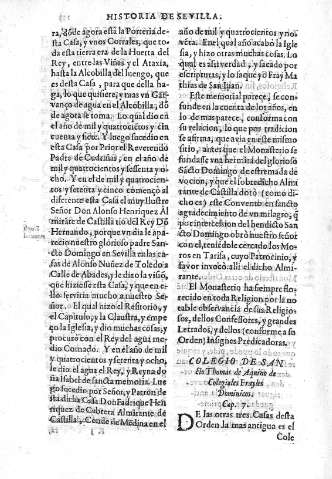 HISTORIA DE SEVILLA.
ra, dõde agora està la Porteria de
sta Casa, y vnos Corrales, que to-
da esta tierra era de la Huerta del
Rey, entre las Viñes y el Ataxia,
hasta la Alcobilla del luengo, que
es desta Casa, para que della ha-
ga, lo que quisiere; y mas vn Gar-
vanço de agua en el Alcobilla, dõ
de agora se toma. Lo qual dio en
el año de mil y quatrocientos y cin
cuenta y siete. Y luego sucedio en
esta Casa por Prior el Reverendo
Padre de en el año de
mil y quatrocientos y sesenta y o-
cho. Y en el de mil y quatrocien-
tos y setenta y cinco començò al
diferente esta Casa el muy Ilustre
Señor Don Alonso Henriquez Al
mirate de Castilla tio del Rey Dõ
Hernando, porque vn dia le apa-
recio nuestro glorioso padre San-
cto Domingo en Sevilla en las ca-
sas de Alonso Nuñez de Toledo a
Calle de Abades, y le dio la vision,
que hiziesse esta Casa, y que en e-
llo serviria mucho a nuestro Se-
ñor. El qual hizo el Refitorio, y
el Capitulo, y la Claustra, y empe-
çò la Iglesia, y dio muchas cosas, y
procurò con el Rey del agua me-
dio Cornado. Y en el año de mil
y quatrocientos y setenta y ocho,
le dio el agua el Rey, y Reyna do
ña Isabel de sancta memoria. Lue
go sucedio por Señor, y Patron de
sta dicha Casa Don Fadrique Hen
riquez de Cabrera Almirante de
Castilla, Cõde de Modica en el
año de mil y quatrocientos y no-
veta. En el qual año acabò la Igle
sia, y hizo otras muchas cosas. Lo
qual es assi verdad, y sacado por
escripturas, y lo saquè yo Fray Ma
thias de San Iuan.
Este memorial parece, se con-
funde en la cuenta de los años, en
lo de mas parece, conforma con
su relacion, lo que por tradicion
se afirma, que avia en este mismo
sitio, antes que el Monasterio se
fundasse vna hermita del glorioso
Sãcto Domingo de estremada de
vocion, y que el sobredicho Almi
rante de Castilla dotò (como di-
cho es) este Convento en sancto
agradecimiento de vn milagro, q̃
que intercession del bendicto San
cto Domingo obrò nuestro señor
con el, teniendole cercado los Mo
ros en Tarifa, cuyo Patrocinio, y
favor invocò alli el dicho Almi-
rante.
El Monasterio ha siempre flo-
recido en toda Religion por la no
table observancia de sus Religio-
sos, dellos Confessores, y grandes
Letrados, y dellos (conforme a su
Orden) Insignes Predicadores.
COLEGIO DE SAN-
cto Thomas de Aquino de
Colegiales Frayles
Dominicos.
Cap. 7.
DE las otras tres Casas desta
Orden la mas antigua es el
Cole